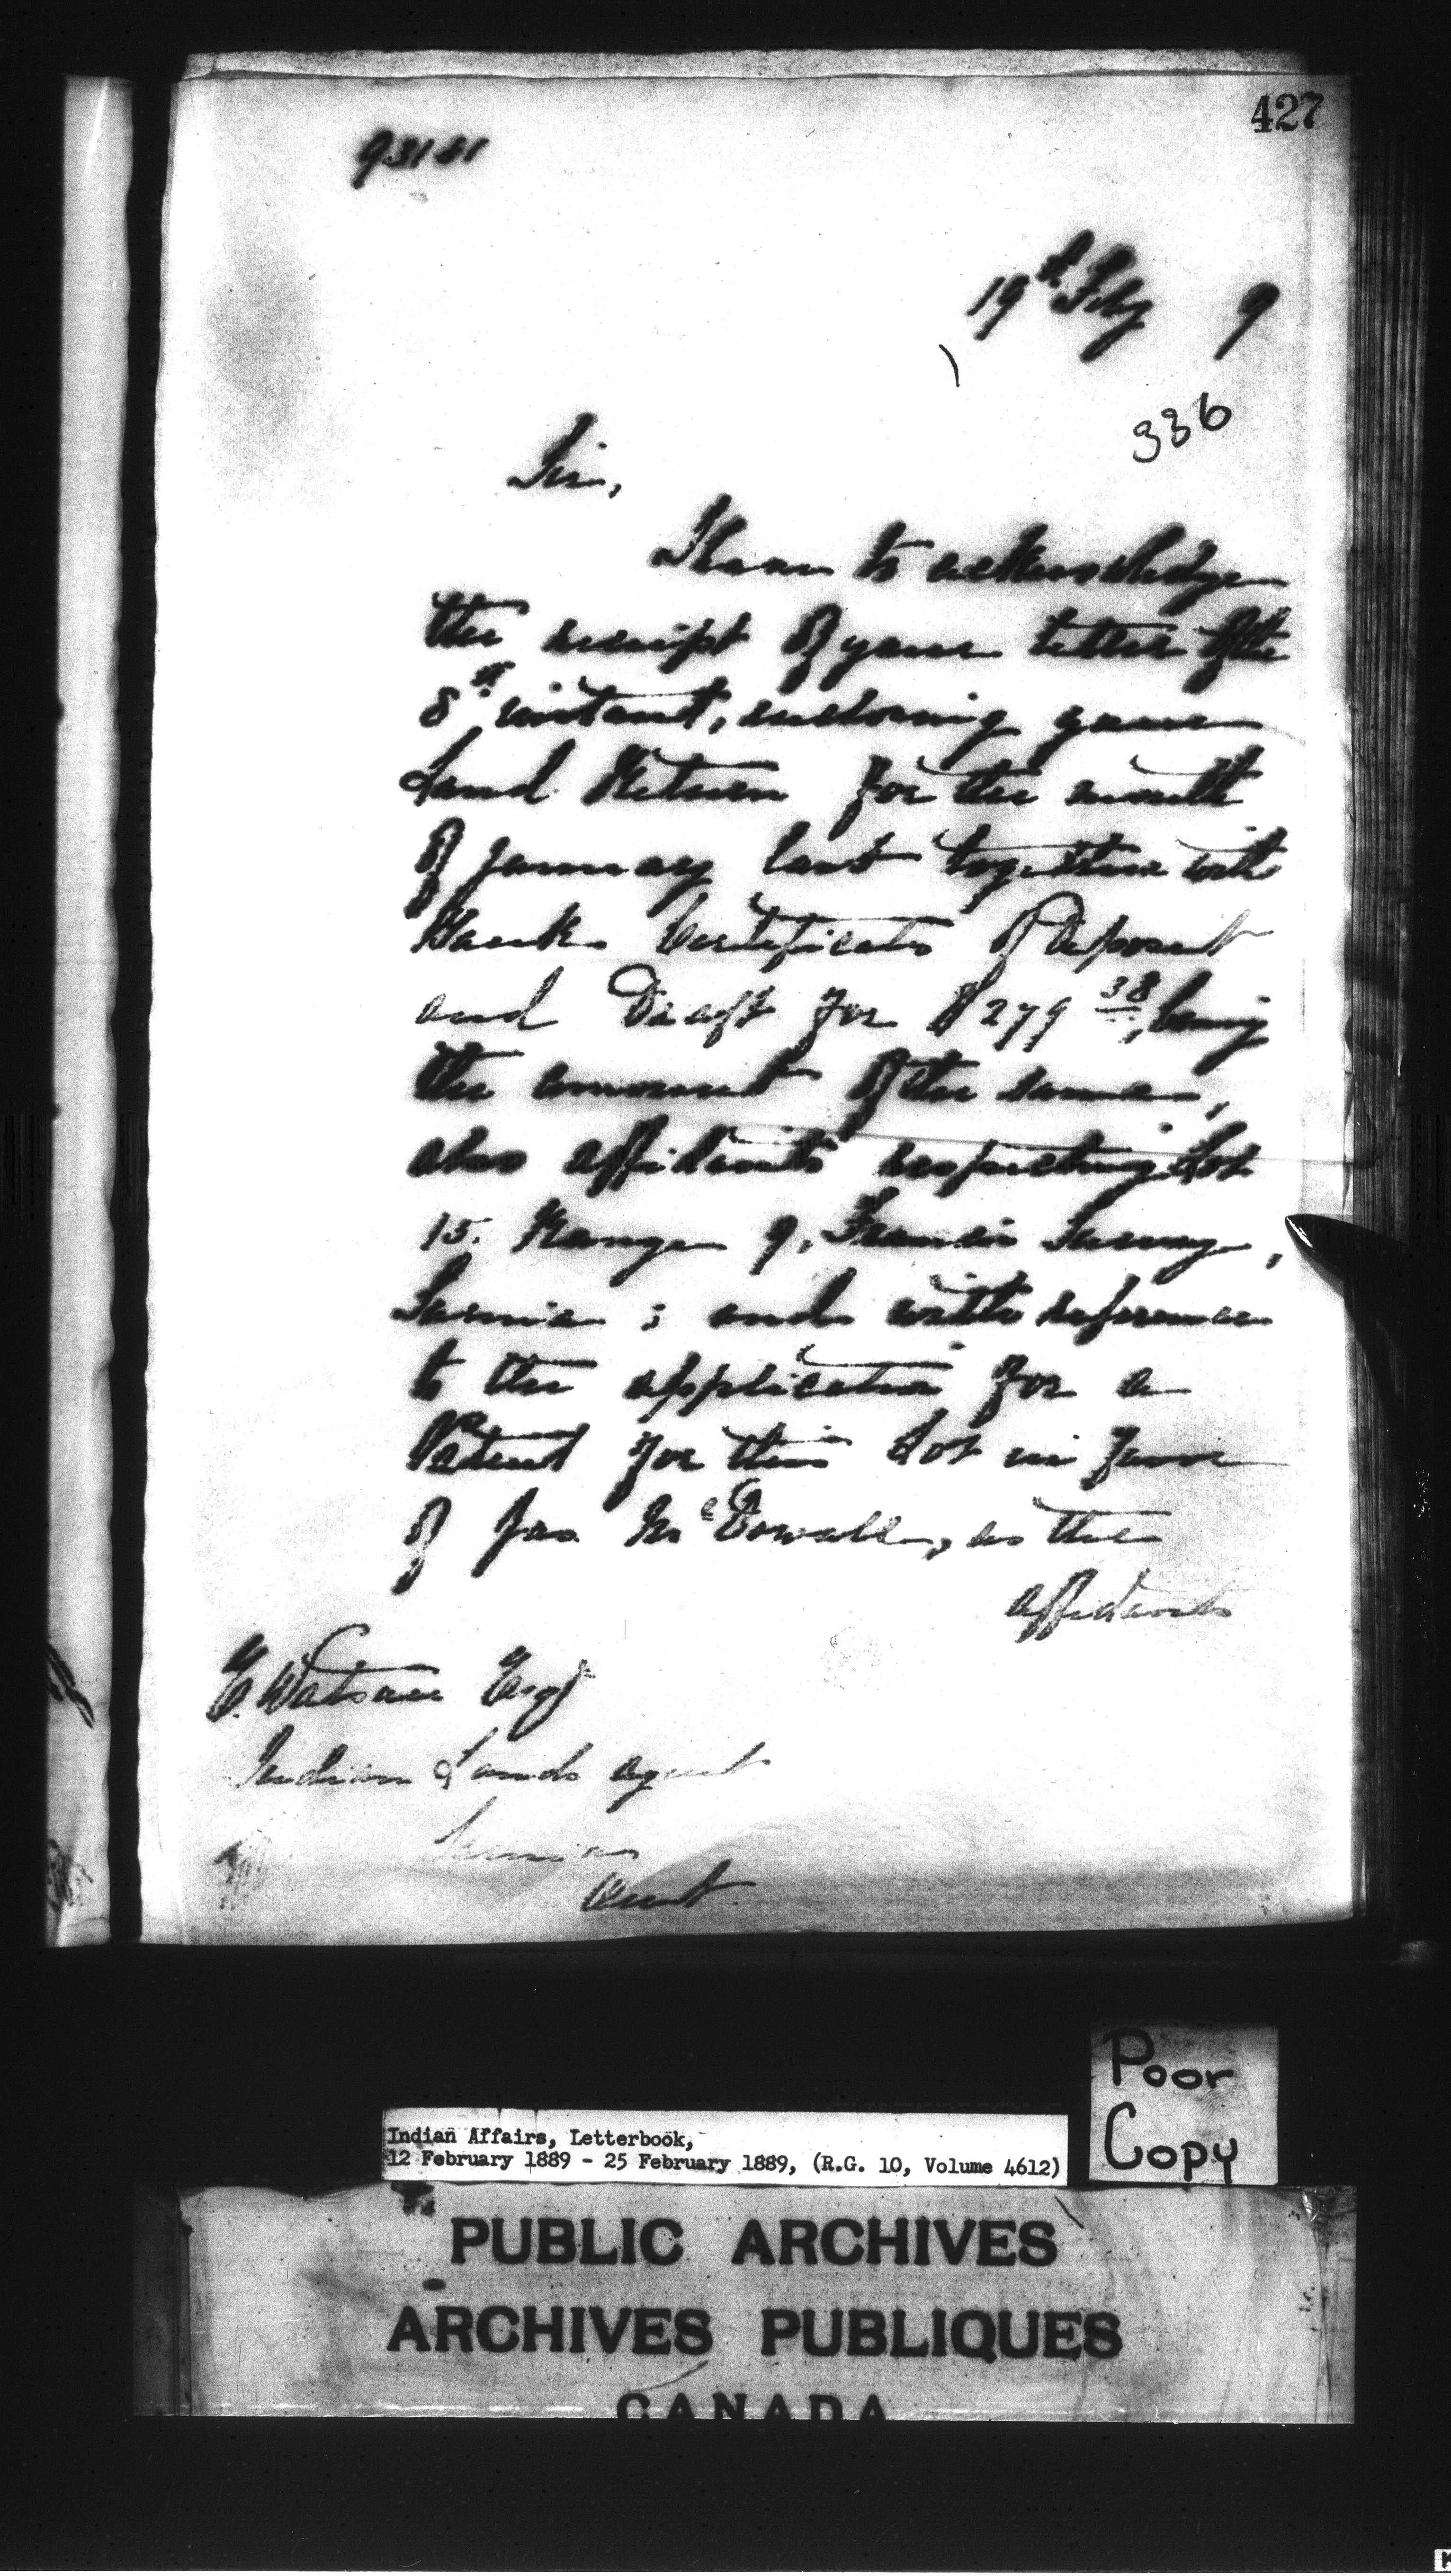 427
93181
19th Feby 9
336
Sir,
I have to acknowledge
the receipt of your letter of the
8th instant, enclosing your
Land Return for the month
of January last together with
Bank Certificate of Deposit
and Draft for $279 38, being
the amount of the same,
also affidavits respecting Lot
15. Range 9, Francis Survey,
Sarnia; and with reference
to the application for a
Patent for this Lot in favor
of Jas. McDowall, as the
affidavits
E. Watson Esq
Indian Lands agent
Sarnia
Ont.
Poor
Copy
Indian Affairs, Letterbook,
12 February 1889 - 25 February 1889, (R.G. 10, Volume 4612)
PUBLIC ARCHIVES
ARCHIVES PUBLIQUES
CANADA